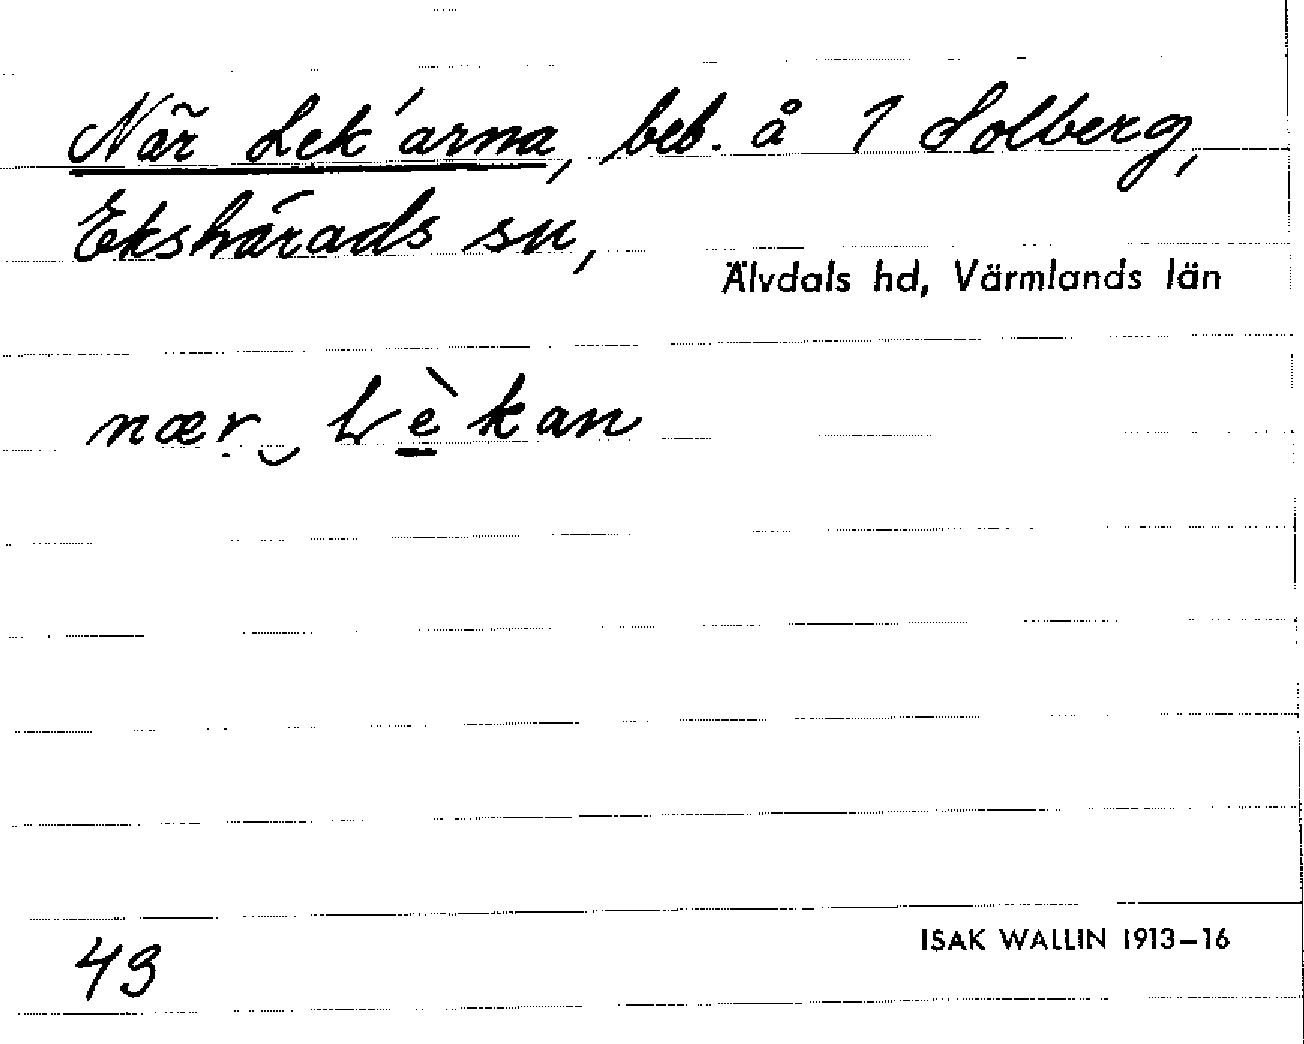 När Lek'arna, beb. å 1 Solberg,
Ekshärads sn,
Älvdals hd, Värmlands län
nær Lèkan
43
ISAK WALLIN 1913–16